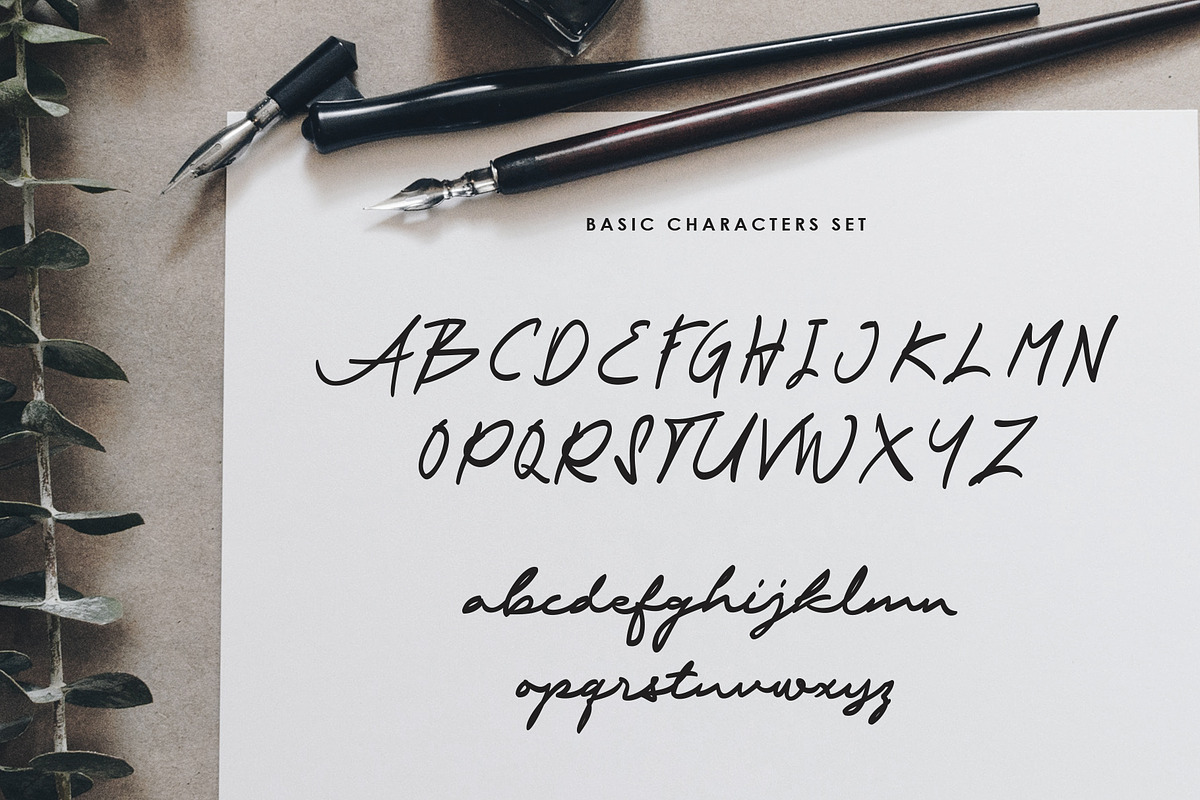 BASIC CHARACTERS SET
ABCDEFGHIJKLMN
OPQRSTUVWXYZ
abcdefghijklmn
opqrstuvwxyz